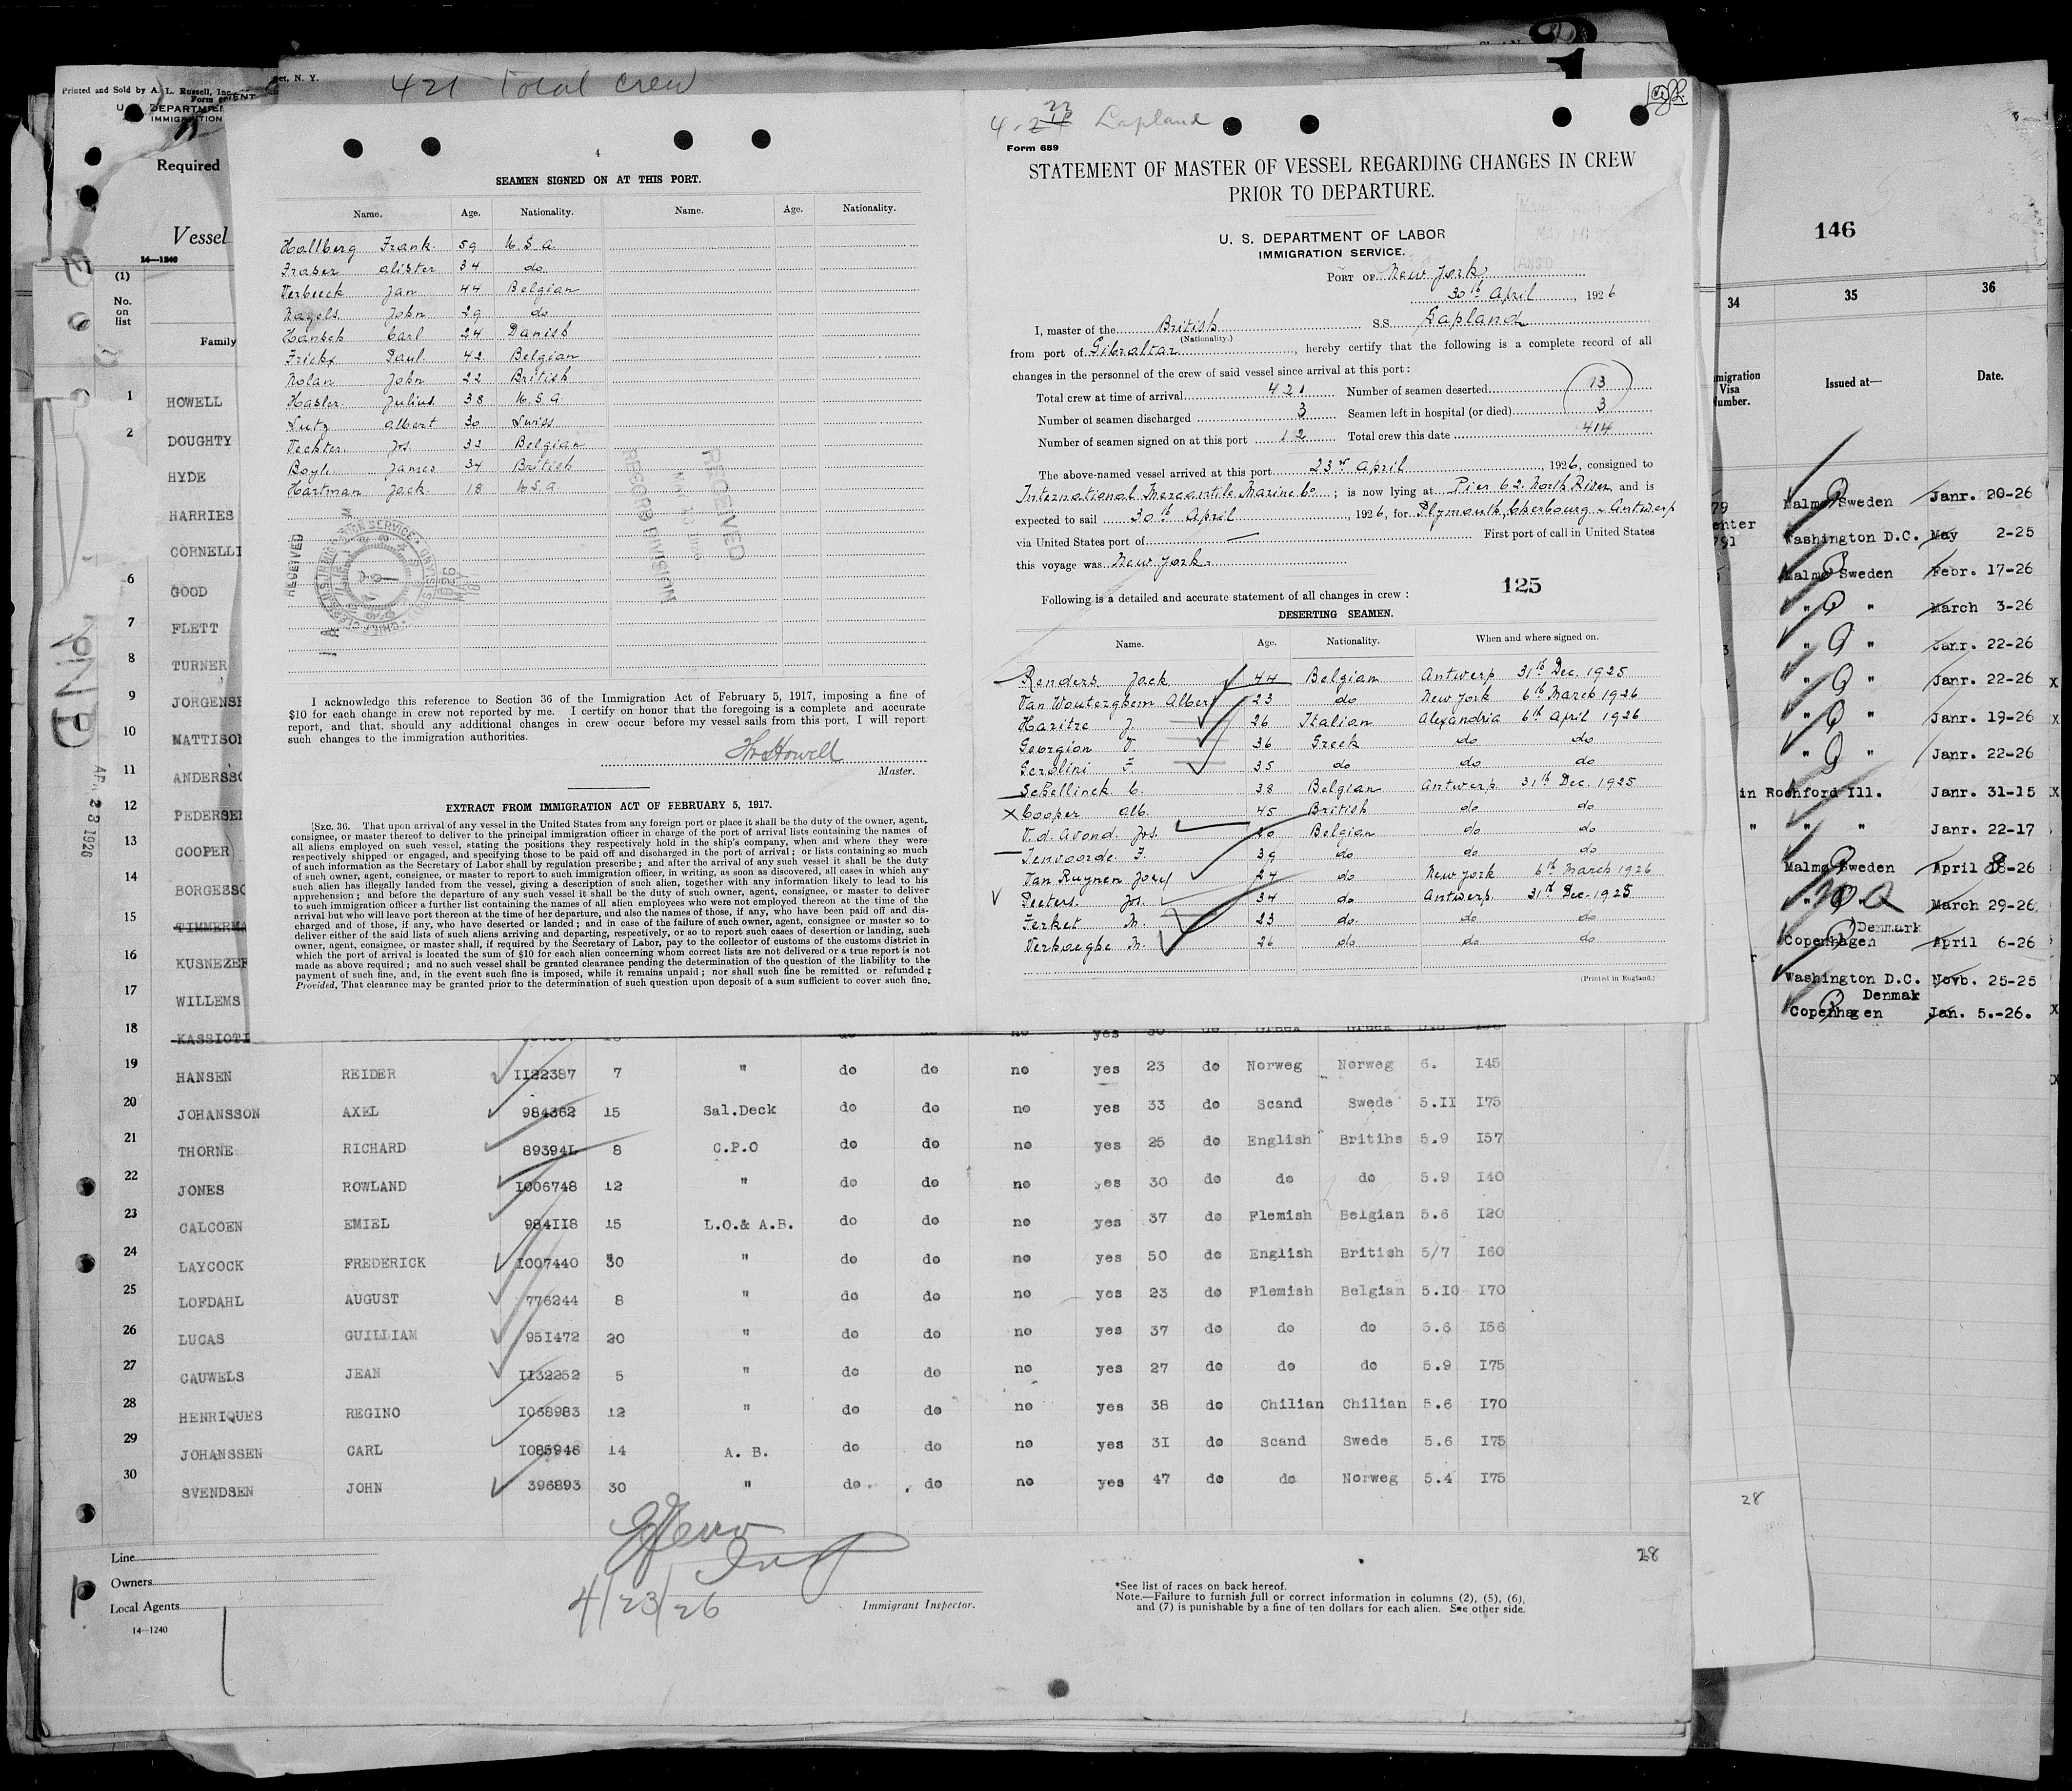 421 Total Crew
Printed and Sold by A. L. Russell, Inc.
Required
Vessel
14—1240
(1)
No.
on
list
Family
4
SEAMEN SIGNED ON AT THIS PORT.
Name. Age. Nationality. Name. Age. Nationality.
Hallberg Frank 59 U.S.A.
Fraser Alister 34 do
Verbeeck Jan 44 Belgian
Nagels John 29 do
Hansen Carl 24 Danish
Frickx Paul 42 Belgian
Nolan John 22 British
Hasler Julius 38 U.S.A.
Lutz Albert 30 Swiss
Vechter Jos. 33 Belgian
Boyle James 34 British
Hartman Jack 18 U.S.A
RECEIVED
RECORD DIVISION
RECEIVED
I acknowledge this reference to Section 36 of the Immigration Act of February 5, 1917, imposing a fine of
$10 for each change in crew not reported by me. I certify on honor that the foregoing is a complete and accurate
report, and that, should any additional changes in crew occur before my vessel sails from this port, I will report
such changes to the immigration authorities.
Howell
Master.
EXTRACT FROM IMMIGRATION ACT OF FEBRUARY 5, 1917.
[SEC. 36. That upon arrival of any vessel in the United States from any foreign port or place it shall be the duty of the owner, agent,
consignee, or master thereof to deliver to the principal immigration officer in charge of the port of arrival lists containing the names of
all aliens employed on such vessel, stating the positions they respectively hold in the ship's company, when and where they were
respectively shipped or engaged, and specifying those to be paid off and discharged in the port of arrival; or lists containing so much
of such information as the Secretary of Labor shall by regulation prescribe; and after the arrival of any such vessel it shall be the duty
of such owner, agent, consignee, or master to report to such immigration officer, in writing, as soon as discovered, all cases in which any
such alien has illegally landed from the vessel, giving a description of such alien, together with any information likely to lead to his
apprehension; and before the departure of any such vessel it shall be the duty of such owner, agent, consignee, or master to deliver
to such immigration officer a further list containing the names of all alien employees who were not employed thereon at the time of the
arrival but who will leave port thereon at the time of her departure, and also the names of those, if any, who have been paid off and dis-
charged and of those, if any, who have deserted or landed; and in case of the failure of such owner, agent, consignee or master so to
deliver either of the said lists of such aliens arriving and departing, respectively, or so to report such cases of desertion or landing, such
owner, agent, consignee, or master shall, if required by the Secretary of Labor, pay to the collector of customs of the customs district in
which the port of arrival is located the sum of $10 for each alien concerning whom correct lists are not delivered or a true report is not
made as above required; and no such vessel shall be granted clearance pending the determination of the question of the liability to the
payment of such fine, and, in the event such fine is imposed, while it remains unpaid; nor shall such fine be remitted or refunded:
Provided, That clearance may be granted prior to the determination of such question upon deposit of a sum sufficient to cover such fine.
Lapland
Form 689
STATEMENT OF MASTER OF VESSEL REGARDING CHANGES IN CREW
PRIOR TO DEPARTURE.
U. S. DEPARTMENT OF LABOR
IMMIGRATION SERVICE.
PORT OF New York
30th April, 1926
I, master of the British S.S. Lapland
(Nationality.)
from port of Gibraltar, hereby certify that the following is a complete record of all
changes in the personnel of the crew of said vessel since arrival at this port:
Total crew at time of arrival 421 Number of seamen deserted 13
Number of seamen discharged 3 Seamen left in hospital (or died) 3
Number of seamen signed on at this port 12 Total crew this date 414
The above-named vessel arrived at this port 23rd April, 1926, consigned to
International Mercantile Marine Co; is now lying at Pier 62 North River and is
expected to sail 30th April, 1926, for Plymouth, Cherbourg - Antwerp
via United States port of — First port of call in United States
this voyage was New York.
125
Following is a detailed and accurate statement of all changes in crew:
DESERTING SEAMEN.
Name. Age. Nationality. When and where signed on.
Renders Jack 44 Belgian Antwerp 31th Dec. 1925
Van Wouterghem Albert 23 do New York 6th March 1926
Haritze J. 26 Italian Alexandria 6th April 1926
Georgion V. 36 Greek do do
Gerolini F. 35 do do do
Schellinck C. 38 Belgian Antwerp 31th Dec. 1925
X Cooper Alb. 45 British do do
V.d. Avond Jos. Belgian do do
Tenvoorde F. 39 do do do
Van Ruynen Josef 27 do New York 6th March 1926
Peeters Jos. 34 do Antwerp 31th Dec. 1925
Ferket M. 23 do do do
Verhaeghe M. 26 do do do
(Printed in England.)
146
34 35 36
Visa Issued at— Date.
Malmo Sweden Janr. 20-26
Washington D.C. May 2-25
Malmo Sweden Febr. 17-26
" " March 3-26
" " Janr. 22-26
" " Janr. 22-26
" " Janr. 19-26
" " Janr. 22-26
in Rockford Ill. Janr. 31-15
" " " Janr. 22-17
Malmo Sweden April
March 29-26
Denmark
Copenhagen April 6-26
Washington D.C. Novb. 25-25
Denmak
Copenhagen Jan. 5.-26.
AP. 23 1926
1 HOWELL
2 DOUGHTY
HYDE
HARRIES
CORNELLI
6 GOOD
7 FLETT
8 TURNER
9 JORGENSE
10 MATTISON
11 ANDERSSO
12 PEDERSEN
13 COOPER
14 BORGESSO
15 TIMMERMA
16 KUSNEZER
17 WILLEMS
18 KASSIOTI
19 HANSEN REIDER 1122387 7 " do do no yes 23 do Norweg Norweg 6. I45
20 JOHANSSON AXEL 984362 15 Sal.Deck do do no yes 33 do Scand Swede 5.II I75
21 THORNE RICHARD 89394L 8 C.P.O do do no yes 25 do English Britihs 5.9 I57
22 JONES ROWLAND I006748 12 " do do no yes 30 do do do 5.9 I40
23 CALCOEN EMIEL 984II8 15 L.O.& A.B. do do no yes 37 do Flemish Belgian 5.6 I20
24 LAYCOCK FREDERICK I007440 30 " do do no yes 50 do English British 5/7 I60
25 LOFDAHL AUGUST 776244 8 " do do no yes 23 do Flemish Belgian 5.I0 I70
26 LUCAS GUILLIAM 95I472 20 " do do no yes 37 do do do 5.6 I56
27 CAUWELS JEAN II32252 5 " do do no yes 27 do do do 5.9 I75
28 HENRIQUES REGINO I068983 12 " do do no yes 38 do Chilian Chilian 5.6 I70
29 JOHANSSEN CARL I085946 14 A. B. do do no yes 3I do Scand Swede 5.6 I75
30 SVENDSEN JOHN 396893 30 " do do no yes 47 do do Norweg 5.4 I75
28
28
Line
Owners
Local Agents
14—1240
4/23/26
Immigrant Inspector.
*See list of races on back hereof.
Note.—Failure to furnish full or correct information in columns (2), (5), (6),
and (7) is punishable by a fine of ten dollars for each alien. See other side.